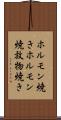 ホルモン焼
きホルモン
焼放物焼き